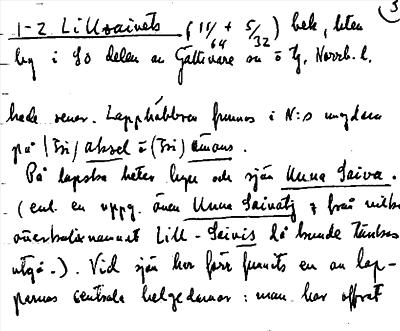 3
1-2 Lillsaivets (11/64 + 5/32) bek, liten
by i SO delen av Gällivare sn o tg, Norrb. l.
hade renar. Lapphåbbren finnes i N:s ungdom
på (Fri) aksel o (Fri)
På lapska heter byn och sjön Unna Saiva.
(enl. en uppg. även Unna Saivatj
Lill-Seivis då kunde tänkas
utgå.). Vid sjön har förr funnits en av lap-
parnas centrala helgedomar: man har offrat